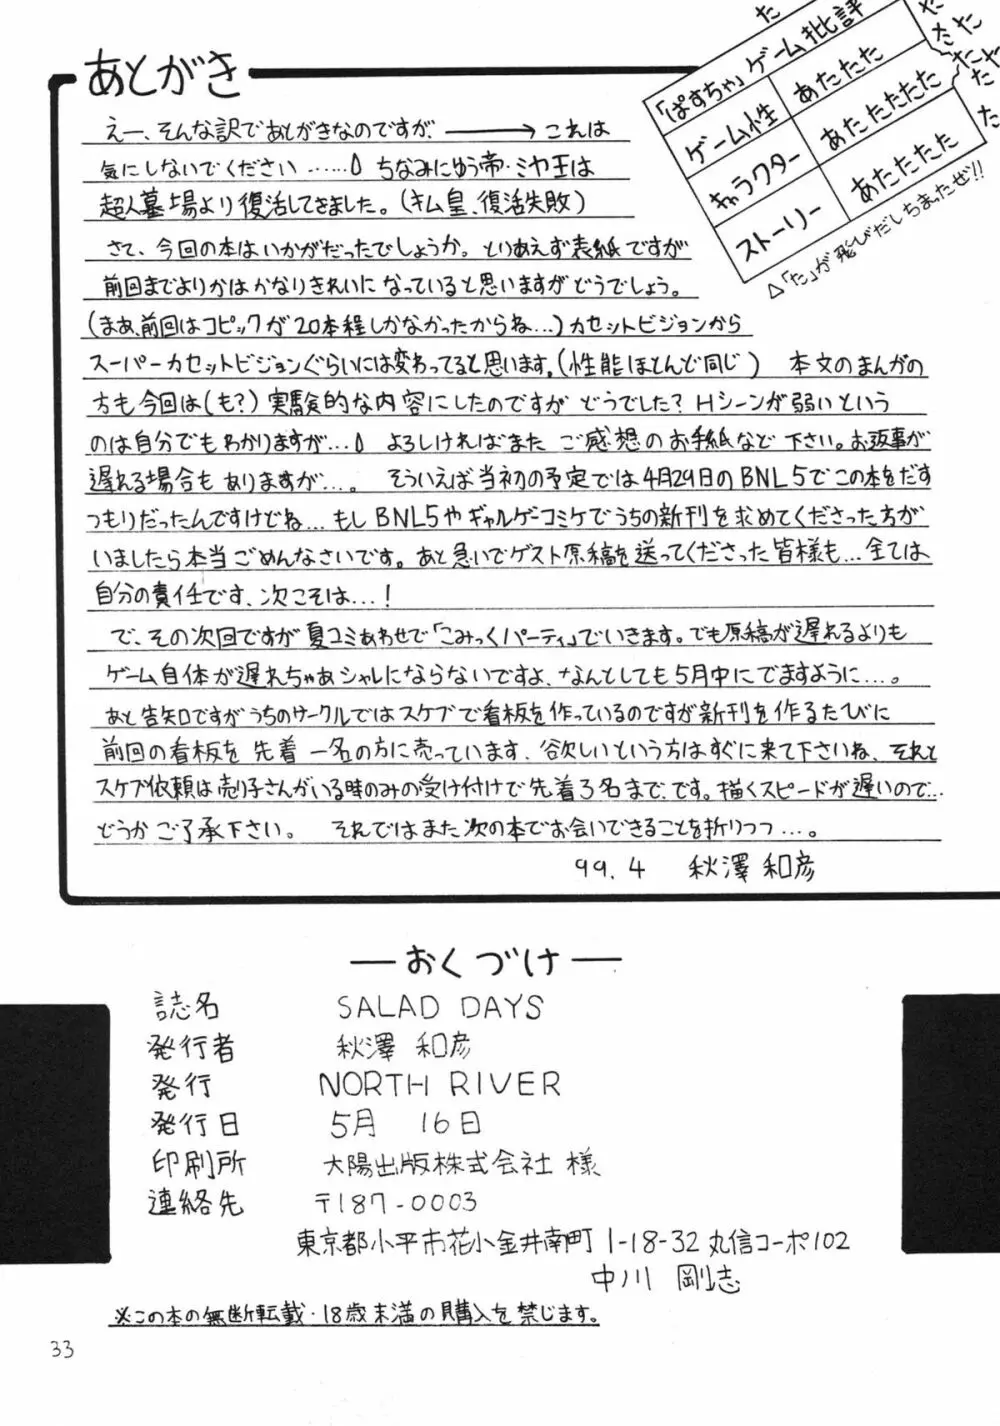 あとがき
えー、そんな訳であとがきなのですが、――→これは
気にしないでください……。ちなみにゆう帝・ミヤ王は
超人墓場より復活してきました。(キム皇、復活失敗)
さて、今回の本はいかがだったでしょうか。とりあえず表紙ですが
前回までよりかはかなりきれいになっていると思いますがどうでしょう。
(まあ、前回はコピックが20本程しかなかったからね…)カセットビジョンから
スーパーカセットビジョンぐらいには変わってると思います。(性能ほとんど同じ) 本文のまんがの
方も今回は(も?)実験的な内容にしたのですがどうでした?Hシーンが弱いという
のは自分でもわかりますが…。よろしければまたご感想のお手紙など下さい。お返事が
遅れる場合もありますが…。 そういえば当初の予定では4月29日のBNL5でこの本をだす
つもりだったんですけどね…もしBNL5やギャルゲーコミケでうちの新刊を求めてくださった方が
いましたら本当ごめんなさいです。あと急いでゲスト原稿を送ってくださった皆様も…全ては
自分の責任です、次こそは…!
で、その次回ですが夏コミあわせで「こみっくパーティ」でいきます。でも原稿が遅れるよりも
ゲーム自体が遅れちゃあシャレにならないですよ、なんとしても5月中にでますように…。
あと告知ですがうちのサークルではスケブで看板を作っているのですが新刊を作るたびに
前回の看板を先着一名の方に売っています、欲しいという方はすぐに来て下さいね、それと
スケブ依頼は売り子さんがいる時のみの受け付けで先着3名まで、です。描くスピードが遅いので…
どうかご了承下さい。 それではまた次の本でお会いできることを祈りつつ…。
99.4 秋澤 和彦
「ぱすちゃ」ゲーム批評
ゲーム性 あたたた
キャラクター あたたたたた
ストーリー あたたたた
た
た
た
た
た
た
た
た
た
△「た」が飛びだしちまったぜ!!
―おくづけ―
誌名 SALAD DAYS
発行者 秋澤 和彦
発行 NORTH RIVER
発行日 5月 16日
印刷所 大陽出版株式会社 様
連絡先 〒187-0003
東京都小平市花小金井南町1-18-32丸信コーポ102
中川 剛志
※この本の無断転載・18歳未満の購入を禁じます。
33